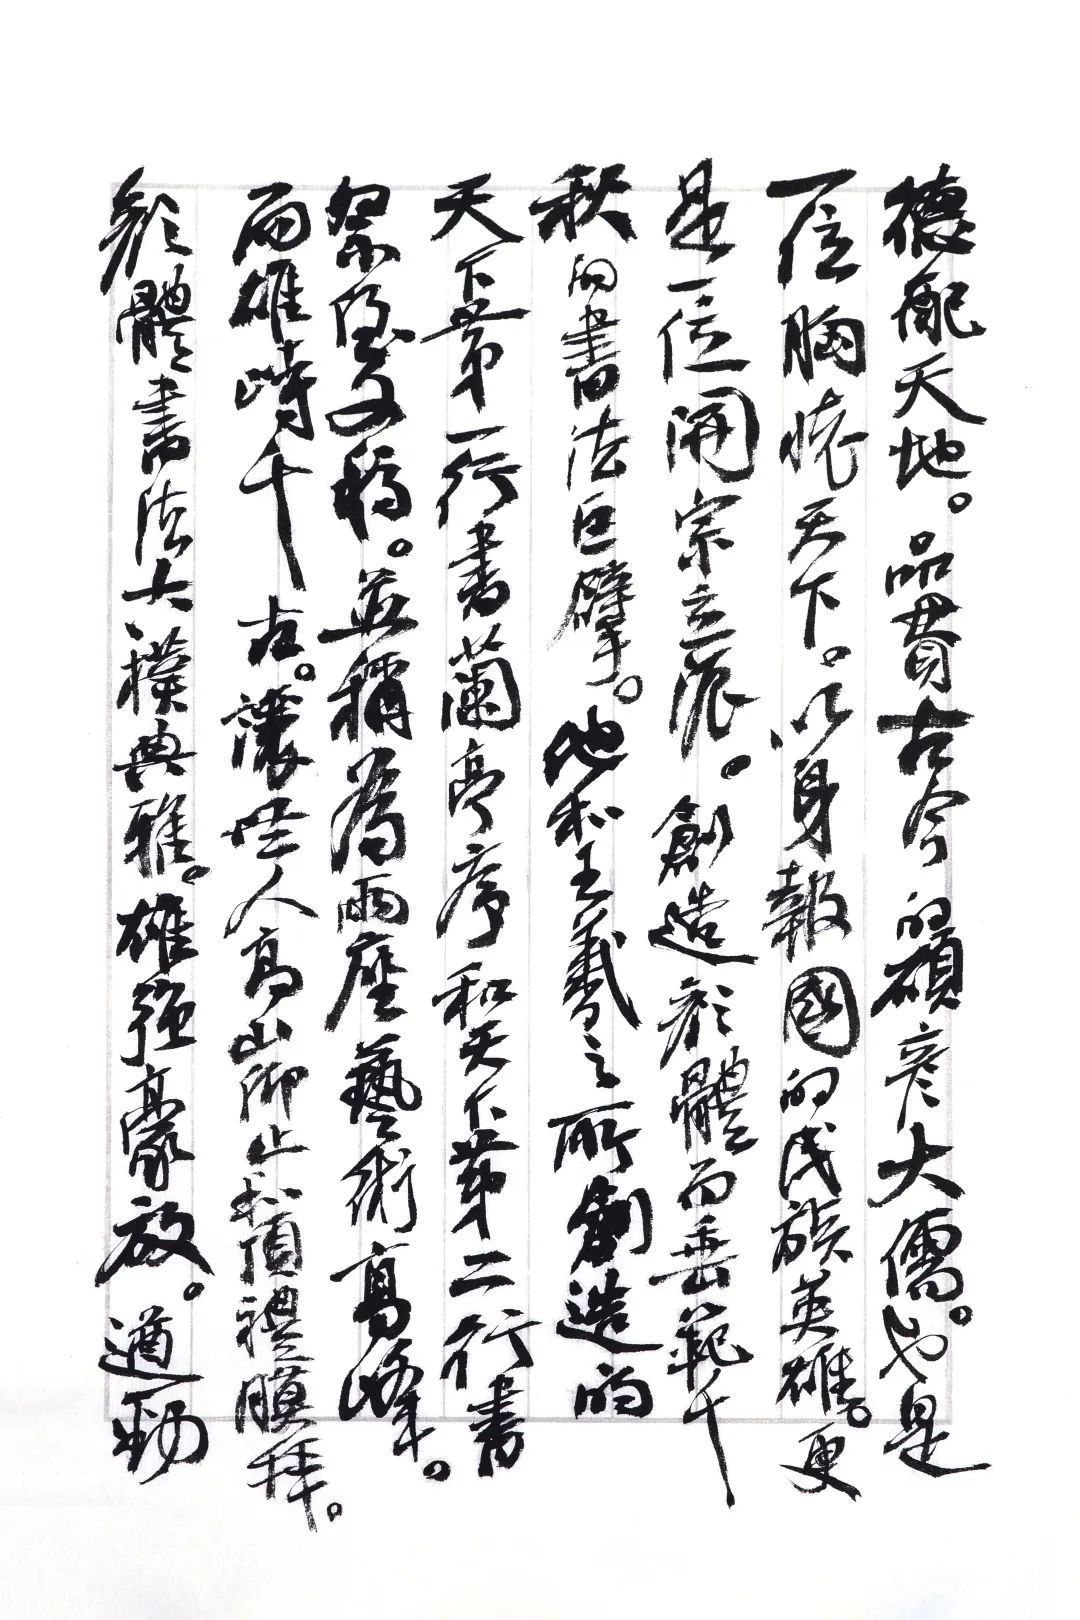 德配天地。品貫古今的碩彦大儒。也是
一位胸懷天下。以身報國的民族英雄。更
是一位開宗立派。創造顔體而垂範千
秋的書法巨擘。他和王羲之所創造的
天下第一行書蘭亭序和天下第二行書
祭姪文稿。並稱為兩座藝術高峰。
而雄峙千古。讓世人高山仰止和頂禮膜拜。
顔體書法大樸典雅。雄強豪放。遒勁